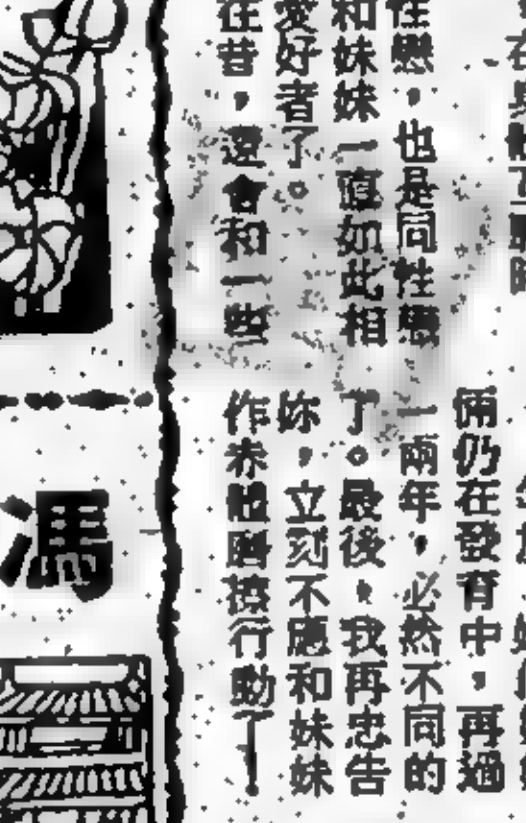 性戀，也是同性戀
和妹妹一直如此相
愛好者了。
在昔，還會和一些
倆仍在發育中，再過
一兩年，必然不同的
了。最後，我再忠告
妳，立刻不應和妹妹
作赤體磨擦行動了！
馮